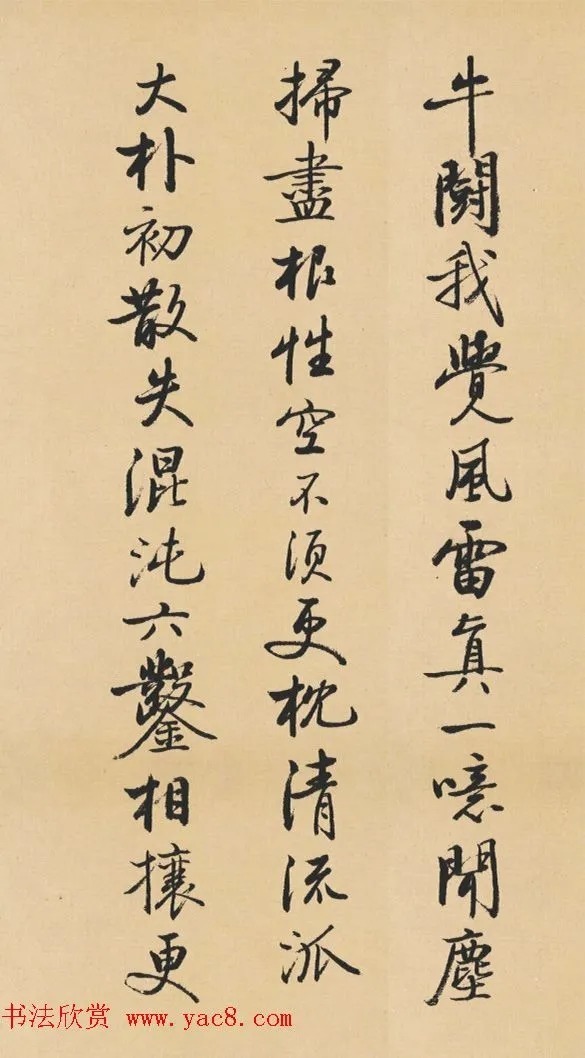 牛鬭我覺風雷真一噫聞塵
掃盡根性空不須更枕清流派
大朴初散失混沌六鑿相攘更
书法欣赏 www.yac8.com